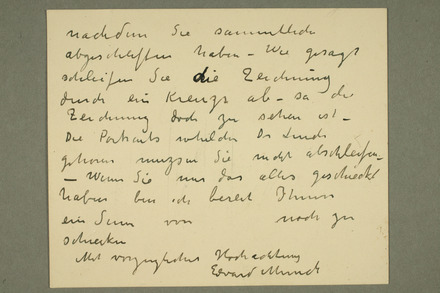 nachdem Sie sammtliche
abgeschliffen haben – Wie gesagt
schleifen Sie die Zeichnung
durch ein Kreuz ab – so die
Zeichnung doch zu sehen ist –
Die Portraits welche Dr Linde
gehoren mussen Sie nicht abschleifen –
– Wenn Sie mir das alles geschickt
haben bin ich bereit Ihnen
ein von noch zu
schicken
Mit vorzuglicher Hochachtung
Edvard Munch